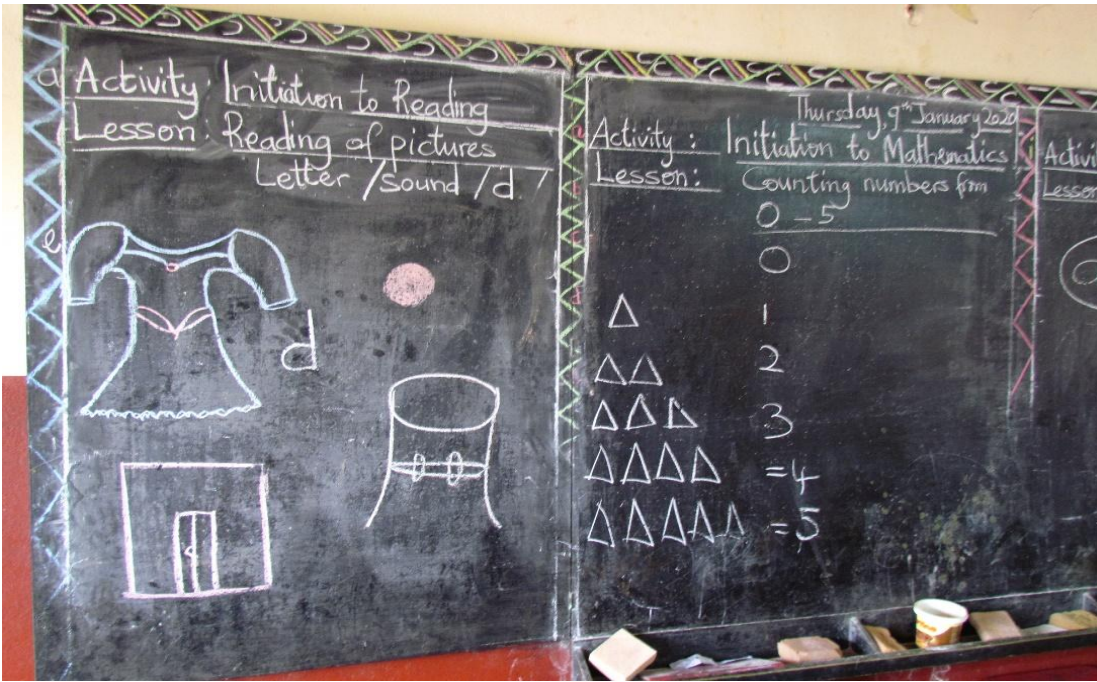 Activity: Initiation to Reading
Lesson: Reading of pictures
Letter /sound /d/
d
Thursday, 9th January 2020
Activity: Initiation to Mathematics
Lesson: Counting numbers from
0 - 5
0
1
2
3
= 4
= 5
Activi
Lesson
a
e